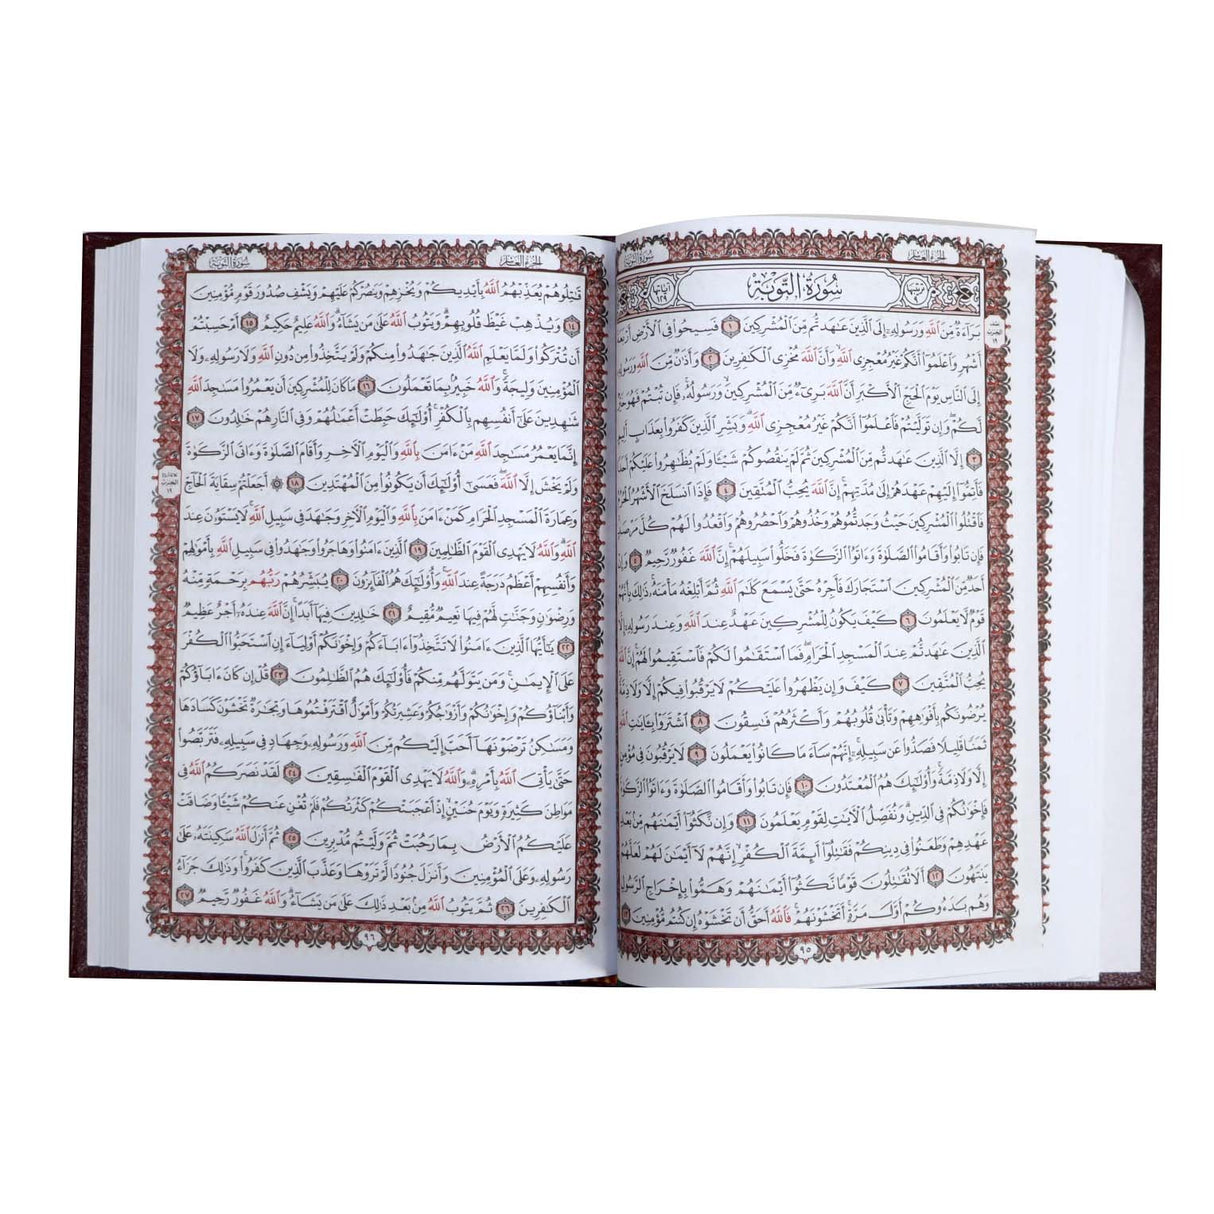 الجزء العاشر سورة التوبة
ترتيبها ٩ سُورَةُ التَّوْبَةِ آياتها ١٢٩
بَرَآءَةٌ مِّنَ ٱللَّهِ وَرَسُولِهِۦٓ إِلَى ٱلَّذِينَ عَٰهَدتُّم مِّنَ ٱلْمُشْرِكِينَ ١ فَسِيحُوا۟ فِى ٱلْأَرْضِ أَرْبَعَةَ
أَشْهُرٍ وَٱعْلَمُوٓا۟ أَنَّكُمْ غَيْرُ مُعْجِزِى ٱللَّهِ وَأَنَّ ٱللَّهَ مُخْزِى ٱلْكَٰفِرِينَ ٢ وَأَذَٰنٌ مِّنَ ٱللَّهِ وَرَسُولِهِۦٓ
إِلَى ٱلنَّاسِ يَوْمَ ٱلْحَجِّ ٱلْأَكْبَرِ أَنَّ ٱللَّهَ بَرِىٓءٌ مِّنَ ٱلْمُشْرِكِينَ وَرَسُولُهُۥ فَإِن تُبْتُمْ فَهُوَ خَيْرٌ
لَّكُمْ وَإِن تَوَلَّيْتُمْ فَٱعْلَمُوٓا۟ أَنَّكُمْ غَيْرُ مُعْجِزِى ٱللَّهِ وَبَشِّرِ ٱلَّذِينَ كَفَرُوا۟ بِعَذَابٍ أَلِيمٍ
٣ إِلَّا ٱلَّذِينَ عَٰهَدتُّم مِّنَ ٱلْمُشْرِكِينَ ثُمَّ لَمْ يَنقُصُوكُمْ شَيْـًٔا وَلَمْ يُظَٰهِرُوا۟ عَلَيْكُمْ أَحَدًا
فَأَتِمُّوٓا۟ إِلَيْهِمْ عَهْدَهُمْ إِلَىٰ مُدَّتِهِمْ إِنَّ ٱللَّهَ يُحِبُّ ٱلْمُتَّقِينَ ٤ فَإِذَا ٱنسَلَخَ ٱلْأَشْهُرُ ٱلْحُرُمُ
فَٱقْتُلُوا۟ ٱلْمُشْرِكِينَ حَيْثُ وَجَدتُّمُوهُمْ وَخُذُوهُمْ وَٱحْصُرُوهُمْ وَٱقْعُدُوا۟ لَهُمْ كُلَّ مَرْصَدٍ
فَإِن تَابُوا۟ وَأَقَامُوا۟ ٱلصَّلَوٰةَ وَءَاتَوُا۟ ٱلزَّكَوٰةَ فَخَلُّوا۟ سَبِيلَهُمْ إِنَّ ٱللَّهَ غَفُورٌ رَّحِيمٌ ٥ وَإِنْ
أَحَدٌ مِّنَ ٱلْمُشْرِكِينَ ٱسْتَجَارَكَ فَأَجِرْهُ حَتَّىٰ يَسْمَعَ كَلَٰمَ ٱللَّهِ ثُمَّ أَبْلِغْهُ مَأْمَنَهُۥ ذَٰلِكَ بِأَنَّهُمْ
قَوْمٌ لَّا يَعْلَمُونَ ٦ كَيْفَ يَكُونُ لِلْمُشْرِكِينَ عَهْدٌ عِندَ ٱللَّهِ وَعِندَ رَسُولِهِۦٓ إِلَّا
ٱلَّذِينَ عَٰهَدتُّمْ عِندَ ٱلْمَسْجِدِ ٱلْحَرَامِ فَمَا ٱسْتَقَٰمُوا۟ لَكُمْ فَٱسْتَقِيمُوا۟ لَهُمْ إِنَّ ٱللَّهَ
يُحِبُّ ٱلْمُتَّقِينَ ٧ كَيْفَ وَإِن يَظْهَرُوا۟ عَلَيْكُمْ لَا يَرْقُبُوا۟ فِيكُمْ إِلًّا وَلَا ذِمَّةً
يُرْضُونَكُم بِأَفْوَٰهِهِمْ وَتَأْبَىٰ قُلُوبُهُمْ وَأَكْثَرُهُمْ فَٰسِقُونَ ٨ ٱشْتَرَوْا۟ بِـَٔايَٰتِ ٱللَّهِ
ثَمَنًا قَلِيلًا فَصَدُّوا۟ عَن سَبِيلِهِۦٓ إِنَّهُمْ سَآءَ مَا كَانُوا۟ يَعْمَلُونَ ٩ لَا يَرْقُبُونَ فِى مُؤْمِنٍ
إِلًّا وَلَا ذِمَّةً وَأُو۟لَٰٓئِكَ هُمُ ٱلْمُعْتَدُونَ ١٠ فَإِن تَابُوا۟ وَأَقَامُوا۟ ٱلصَّلَوٰةَ وَءَاتَوُا۟ ٱلزَّكَوٰةَ
فَإِخْوَٰنُكُمْ فِى ٱلدِّينِ وَنُفَصِّلُ ٱلْـَٔايَٰتِ لِقَوْمٍ يَعْلَمُونَ ١١ وَإِن نَّكَثُوٓا۟ أَيْمَٰنَهُم مِّنۢ بَعْدِ
عَهْدِهِمْ وَطَعَنُوا۟ فِى دِينِكُمْ فَقَٰتِلُوٓا۟ أَئِمَّةَ ٱلْكُفْرِ إِنَّهُمْ لَآ أَيْمَٰنَ لَهُمْ لَعَلَّهُمْ
يَنتَهُونَ ١٢ أَلَا تُقَٰتِلُونَ قَوْمًا نَّكَثُوٓا۟ أَيْمَٰنَهُمْ وَهَمُّوا۟ بِإِخْرَاجِ ٱلرَّسُولِ
وَهُم بَدَءُوكُمْ أَوَّلَ مَرَّةٍ أَتَخْشَوْنَهُمْ فَٱللَّهُ أَحَقُّ أَن تَخْشَوْهُ إِن كُنتُم مُّؤْمِنِينَ ١٣
٩٥
الجزء العاشر سورة التوبة
قَٰتِلُوهُمْ يُعَذِّبْهُمُ ٱللَّهُ بِأَيْدِيكُمْ وَيُخْزِهِمْ وَيَنصُرْكُمْ عَلَيْهِمْ وَيَشْفِ صُدُورَ قَوْمٍ مُّؤْمِنِينَ
١٤ وَيُذْهِبْ غَيْظَ قُلُوبِهِمْ وَيَتُوبُ ٱللَّهُ عَلَىٰ مَن يَشَآءُ وَٱللَّهُ عَلِيمٌ حَكِيمٌ ١٥ أَمْ حَسِبْتُمْ
أَن تُتْرَكُوا۟ وَلَمَّا يَعْلَمِ ٱللَّهُ ٱلَّذِينَ جَٰهَدُوا۟ مِنكُمْ وَلَمْ يَتَّخِذُوا۟ مِن دُونِ ٱللَّهِ وَلَا رَسُولِهِۦ وَلَا
ٱلْمُؤْمِنِينَ وَلِيجَةً وَٱللَّهُ خَبِيرٌۢ بِمَا تَعْمَلُونَ ١٦ مَا كَانَ لِلْمُشْرِكِينَ أَن يَعْمُرُوا۟ مَسَٰجِدَ ٱللَّهِ
شَٰهِدِينَ عَلَىٰٓ أَنفُسِهِم بِٱلْكُفْرِ أُو۟لَٰٓئِكَ حَبِطَتْ أَعْمَٰلُهُمْ وَفِى ٱلنَّارِ هُمْ خَٰلِدُونَ ١٧
إِنَّمَا يَعْمُرُ مَسَٰجِدَ ٱللَّهِ مَنْ ءَامَنَ بِٱللَّهِ وَٱلْيَوْمِ ٱلْـَٔاخِرِ وَأَقَامَ ٱلصَّلَوٰةَ وَءَاتَى ٱلزَّكَوٰةَ
وَلَمْ يَخْشَ إِلَّا ٱللَّهَ فَعَسَىٰٓ أُو۟لَٰٓئِكَ أَن يَكُونُوا۟ مِنَ ٱلْمُهْتَدِينَ ١٨ ۞ أَجَعَلْتُمْ سِقَايَةَ ٱلْحَآجِّ
وَعِمَارَةَ ٱلْمَسْجِدِ ٱلْحَرَامِ كَمَنْ ءَامَنَ بِٱللَّهِ وَٱلْيَوْمِ ٱلْـَٔاخِرِ وَجَٰهَدَ فِى سَبِيلِ ٱللَّهِ لَا يَسْتَوُۥنَ عِندَ
ٱللَّهِ وَٱللَّهُ لَا يَهْدِى ٱلْقَوْمَ ٱلظَّٰلِمِينَ ١٩ ٱلَّذِينَ ءَامَنُوا۟ وَهَاجَرُوا۟ وَجَٰهَدُوا۟ فِى سَبِيلِ ٱللَّهِ بِأَمْوَٰلِهِمْ
وَأَنفُسِهِمْ أَعْظَمُ دَرَجَةً عِندَ ٱللَّهِ وَأُو۟لَٰٓئِكَ هُمُ ٱلْفَآئِزُونَ ٢٠ يُبَشِّرُهُمْ رَبُّهُم بِرَحْمَةٍ مِّنْهُ
وَرِضْوَٰنٍ وَجَنَّٰتٍ لَّهُمْ فِيهَا نَعِيمٌ مُّقِيمٌ ٢١ خَٰلِدِينَ فِيهَآ أَبَدًا إِنَّ ٱللَّهَ عِندَهُۥٓ أَجْرٌ عَظِيمٌ
٢٢ يَٰٓأَيُّهَا ٱلَّذِينَ ءَامَنُوا۟ لَا تَتَّخِذُوٓا۟ ءَابَآءَكُمْ وَإِخْوَٰنَكُمْ أَوْلِيَآءَ إِنِ ٱسْتَحَبُّوا۟ ٱلْكُفْرَ
عَلَى ٱلْإِيمَٰنِ وَمَن يَتَوَلَّهُم مِّنكُمْ فَأُو۟لَٰٓئِكَ هُمُ ٱلظَّٰلِمُونَ ٢٣ قُلْ إِن كَانَ ءَابَآؤُكُمْ
وَأَبْنَآؤُكُمْ وَإِخْوَٰنُكُمْ وَأَزْوَٰجُكُمْ وَعَشِيرَتُكُمْ وَأَمْوَٰلٌ ٱقْتَرَفْتُمُوهَا وَتِجَٰرَةٌ تَخْشَوْنَ كَسَادَهَا
وَمَسَٰكِنُ تَرْضَوْنَهَآ أَحَبَّ إِلَيْكُم مِّنَ ٱللَّهِ وَرَسُولِهِۦ وَجِهَادٍ فِى سَبِيلِهِۦ فَتَرَبَّصُوا۟
حَتَّىٰ يَأْتِىَ ٱللَّهُ بِأَمْرِهِۦ وَٱللَّهُ لَا يَهْدِى ٱلْقَوْمَ ٱلْفَٰسِقِينَ ٢٤ لَقَدْ نَصَرَكُمُ ٱللَّهُ فِى
مَوَاطِنَ كَثِيرَةٍ وَيَوْمَ حُنَيْنٍ إِذْ أَعْجَبَتْكُمْ كَثْرَتُكُمْ فَلَمْ تُغْنِ عَنكُمْ شَيْـًٔا وَضَاقَتْ
عَلَيْكُمُ ٱلْأَرْضُ بِمَا رَحُبَتْ ثُمَّ وَلَّيْتُم مُّدْبِرِينَ ٢٥ ثُمَّ أَنزَلَ ٱللَّهُ سَكِينَتَهُۥ عَلَىٰ
رَسُولِهِۦ وَعَلَى ٱلْمُؤْمِنِينَ وَأَنزَلَ جُنُودًا لَّمْ تَرَوْهَا وَعَذَّبَ ٱلَّذِينَ كَفَرُوا۟ وَذَٰلِكَ جَزَآءُ
ٱلْكَٰفِرِينَ ٢٦ ثُمَّ يَتُوبُ ٱللَّهُ مِنۢ بَعْدِ ذَٰلِكَ عَلَىٰ مَن يَشَآءُ وَٱللَّهُ غَفُورٌ رَّحِيمٌ ٢٧
٩٦